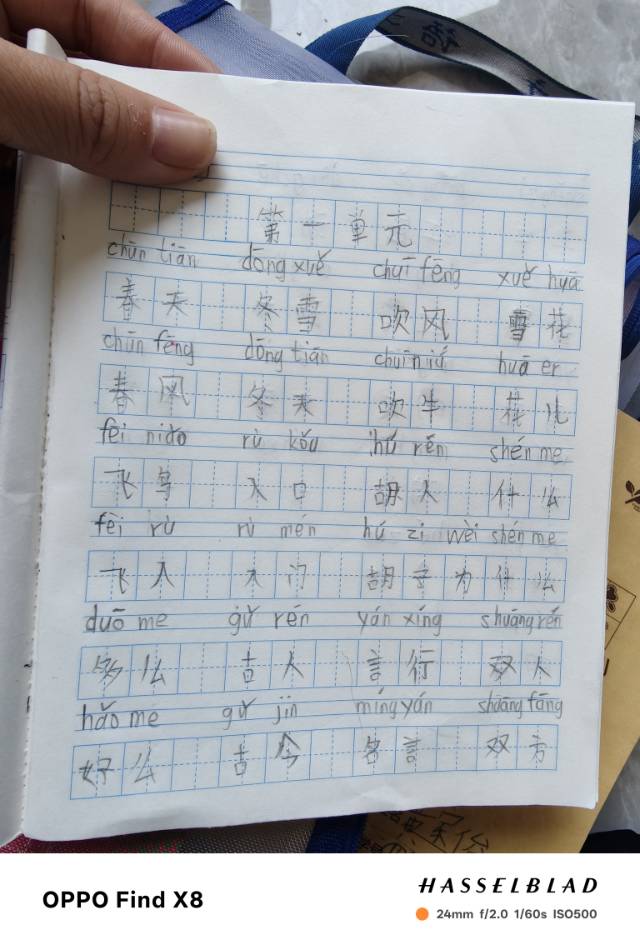 第一单元
chūn tiān dōng xuě chuī fēng xuě huā
春天 冬雪 吹风 雪花
chūn fēng dōng tiān chuī niú huā er
春风 冬天 吹牛 花儿
fēi niǎo rù kǒu hú rén shén me
飞鸟 入口 胡人 什么
fēi rù rù mén hú zi wèi shén me
飞入 入门 胡子 为什么
duō me gǔ rén yán xíng shuāng rén
多么 古人 言行 双人
hǎo me gǔ jīn míng yán shuāng fāng
好么 古今 名言 双方
OPPO Find X8
HASSELBLAD
24mm f/2.0 1/60s ISO500